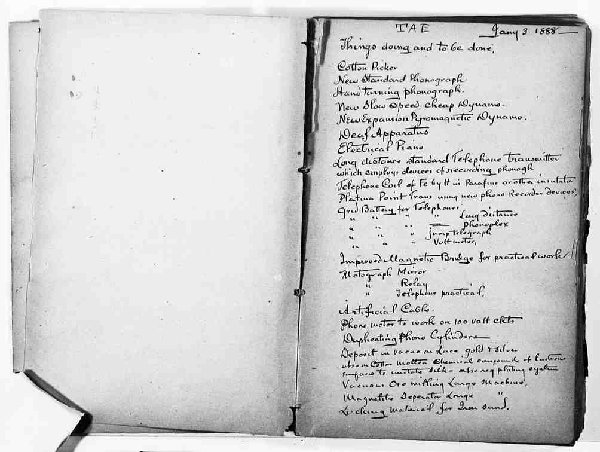 TAE Jany 3 1888
Things doing and to be done.
Cotton Picker
New Standard Phonograph
Hand Turning phonograph.
New Slow Speed Cheap Dynamo.
New Expansion Pyromagnetic Dynamo.
Deaf Apparatus
Electrical Piano
Long distance standard Telephone Transmitter
which employs devices of recording phonogh
Telephone Coil of Fe by tt in Parafine or other insulator
Platina Point Trans using new phone Recorder devices,
Grid Battery for Telephones.
" " " " Long distance
" " " Phonoplex
" " " Jump Telegraph
" " " Voltmeter,
Improved Magnetic Bridge for practical work
Motograph Mirror
" Relay
" Telephone practical,
Artificial Cable
Phone motor to work on 100 volt ckts
Duplicating Phono Cylinders
Deposit in vacuo on Lace, gold & silver
also on Cotton molten chemical compound of lustrous
surface to imitate silk - also reg plating system
Vacuous Ore milling Large Machine.
Magnetic Separator Large "
Locking Material for Iron sand.